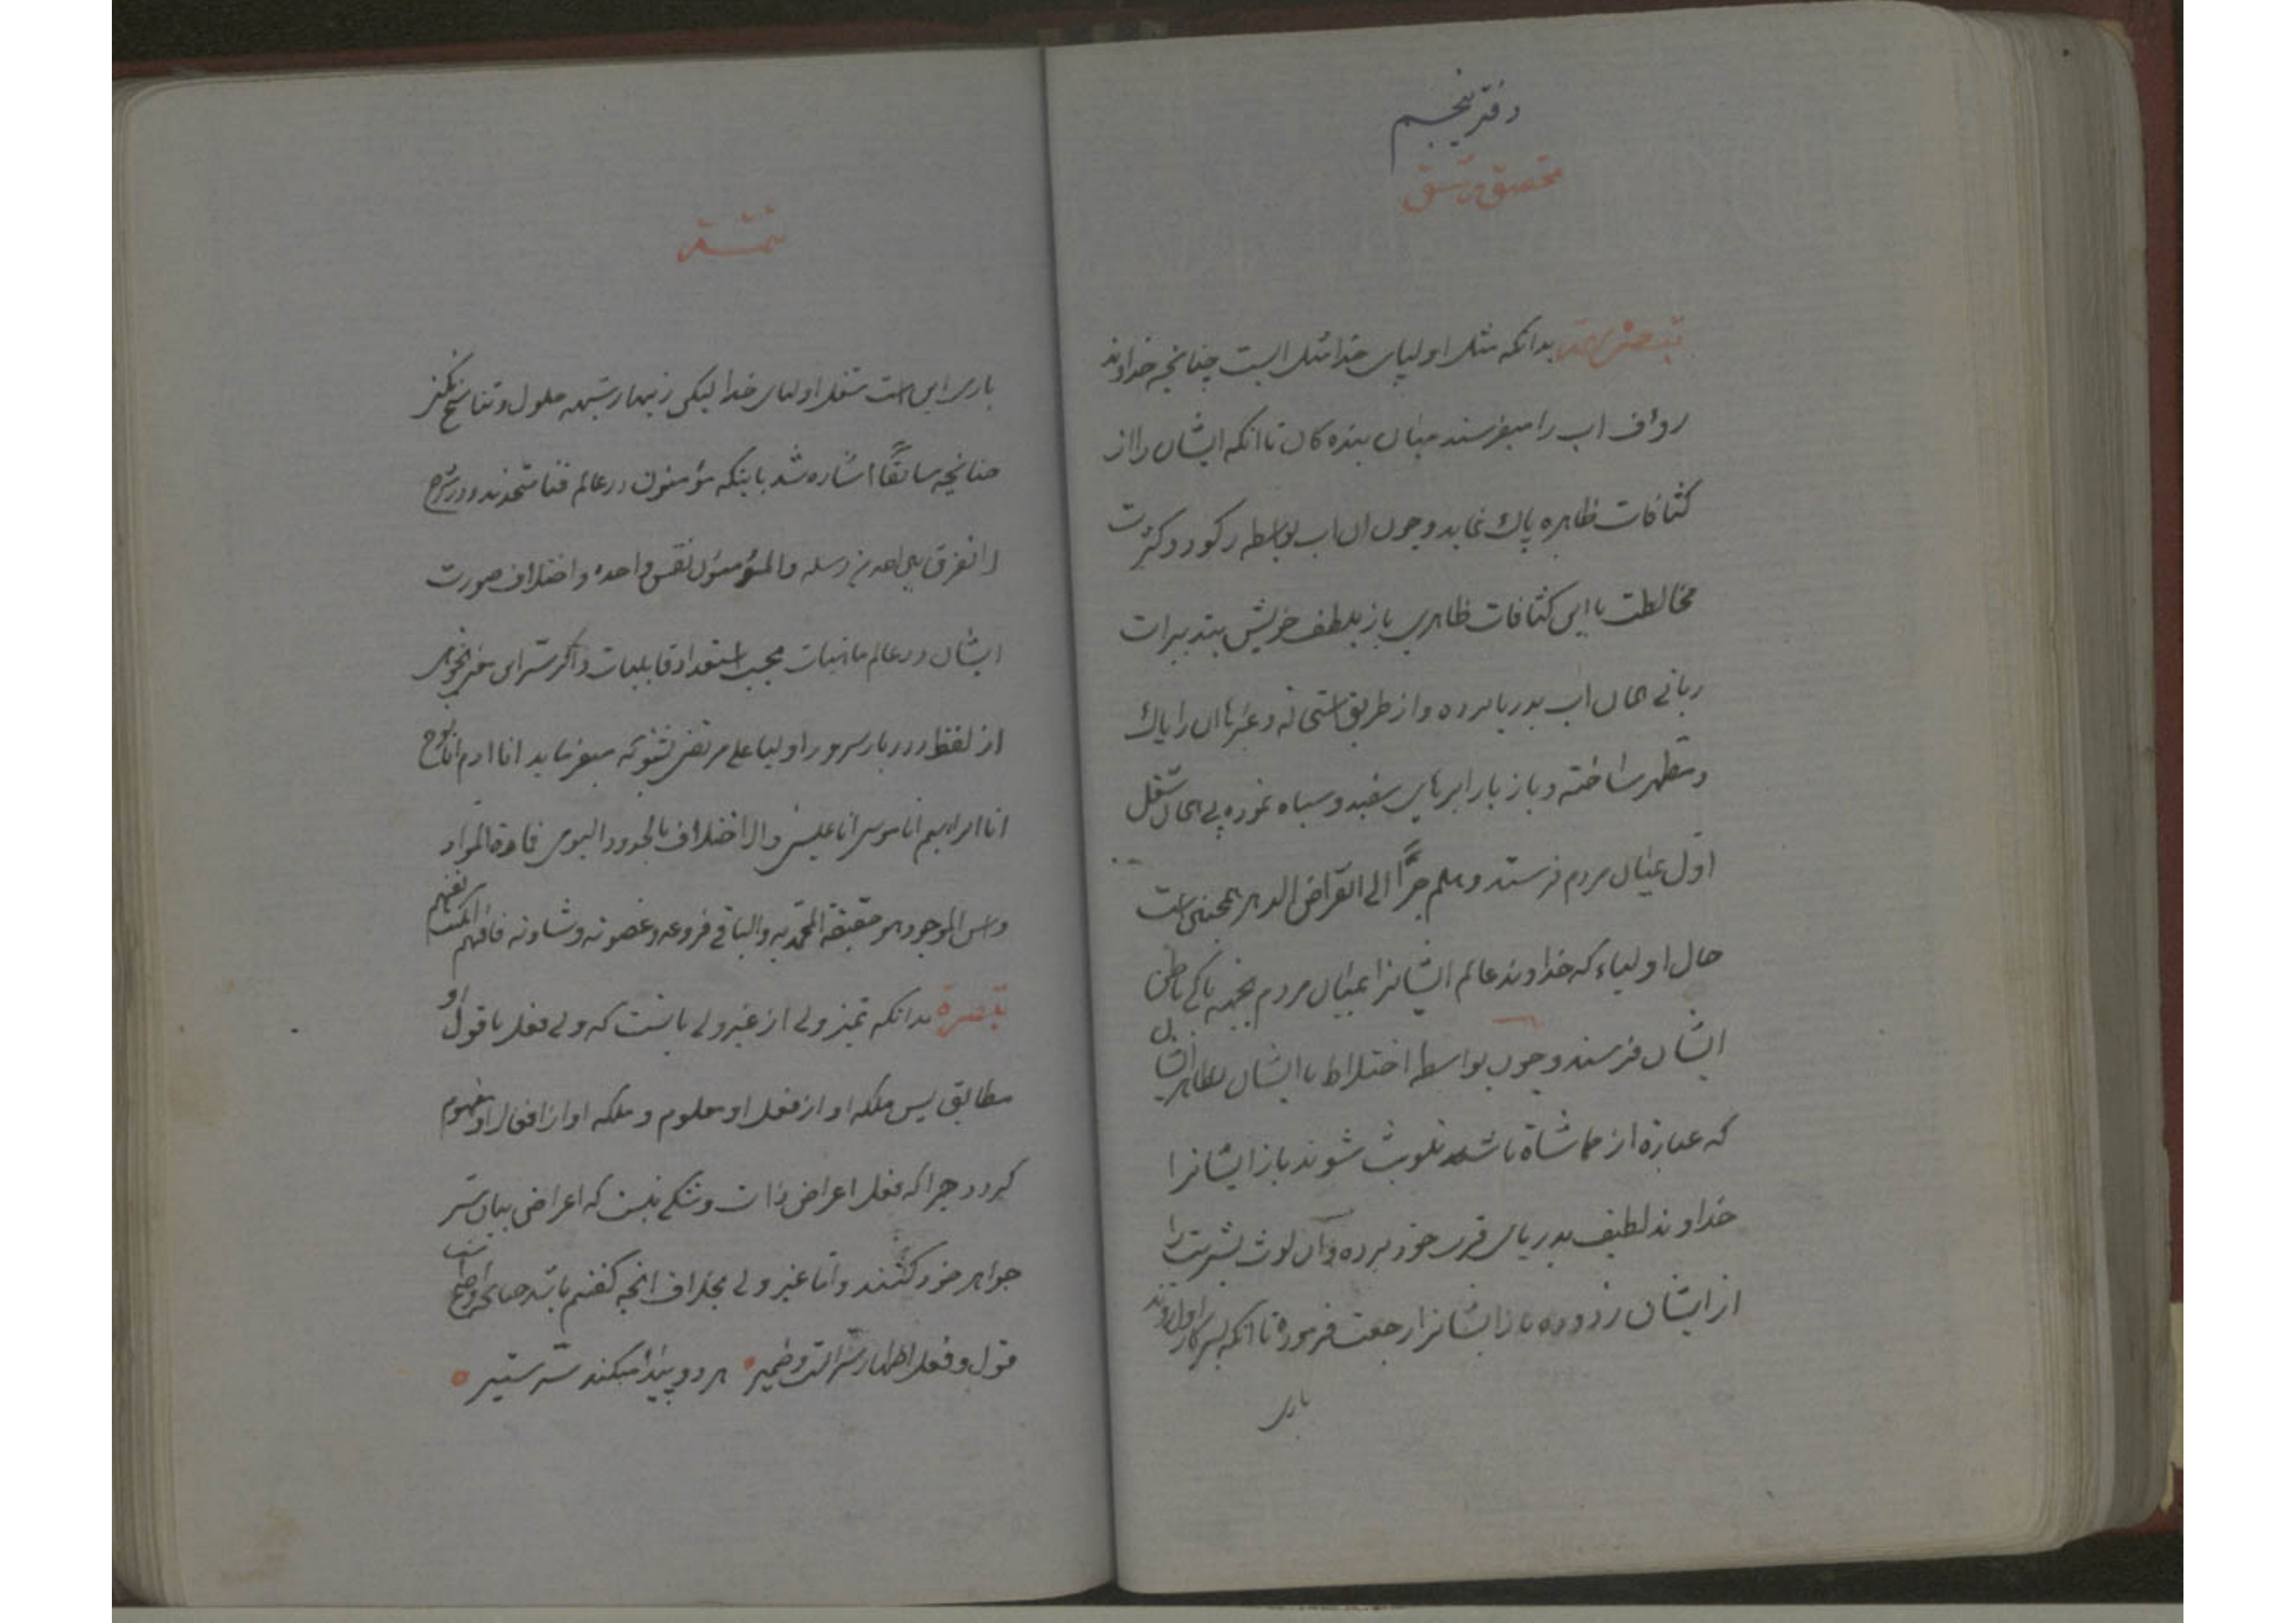 دفتر پنجم
تحقیق رشیق
بدانکه مثل اولیای خدا مثل ابست چنانچه خداوند
رؤف اب را میفرستد میان بنده کان تا انکه ایشان را از
کثافات ظاهره پاك نماید و چون ان اب بواسطه رکود و کثرت
مخالطت با این کثافات ظاهری باز بلطف خویش بتدبیرات
ربانی همان اب بدریا برده و از طریق استحاله و غیرها ان را پاك
و مطهر ساخته و باز بار ابرهای سفید و سیاه نموده پی همان شغل
اوّل میان مردم فرستد و هلم جرًّا الی انقراض الدهر همچنین است
حال اولیاء که خداوند عالم ایشانرا بمیان مردم بجهة پاکی باطن
ایشان فرستد و چون بواسطه اختلاط با ایشان بظاهر ایشان
که عبارة از مماشاة باشد تلویث شوند باز ایشانرا
خداوند لطیف بدریای قرب خود برده و ان لوث بشریت را
از ایشان زدوده باز ایشانرا رجعت فرموده تا انکه بسر کار اول روند
باری
تتمة
باری این است شغل اولیای خدا لیکن زینهار شبهه حلول و تناسخ نکنی
چنانچه سابقًا اشاره شد باینکه مؤمنون در عالم فنا متحدند و در شرح
لا نفرق بین احد من رسله و المؤمنون نفس واحده و اختلاف صورت
ایشان در عالم ماهیات بحسب استعداد قابلیات و اگر سرّ این سخن خواهی
از لفظ درربار سرور اولیا علی مرتضی بشنو که میفرماید انا ادم انا نوح
انا ابراهیم انا موسی انا عیسی و الاختلاف بالحدود الیوی فامة المواد
و اس الموجود هو حقیقة المحمدیه و الباقی فروعه و غصونه و شاونه فافهم ان کنت تفهم
تبصرة بدانکه تمیز ولی از غیر ولی بانست که ولی فعل با قول او
مطابق پس ملکه او از فعل او معلوم و ملکه او از افعال او مفهوم
گردد چرا که فعل اعراض ذات و شکی نیست که اعراض بیان سرّ
جواهر خود کنند و اما غیر ولی بخلاف انچه گفتیم باشد چنانچه واضح است
قول و فعل اظهار سرّ است و ضمیر ٠ هر دو پیدا میکند سرّ ستیر ٥